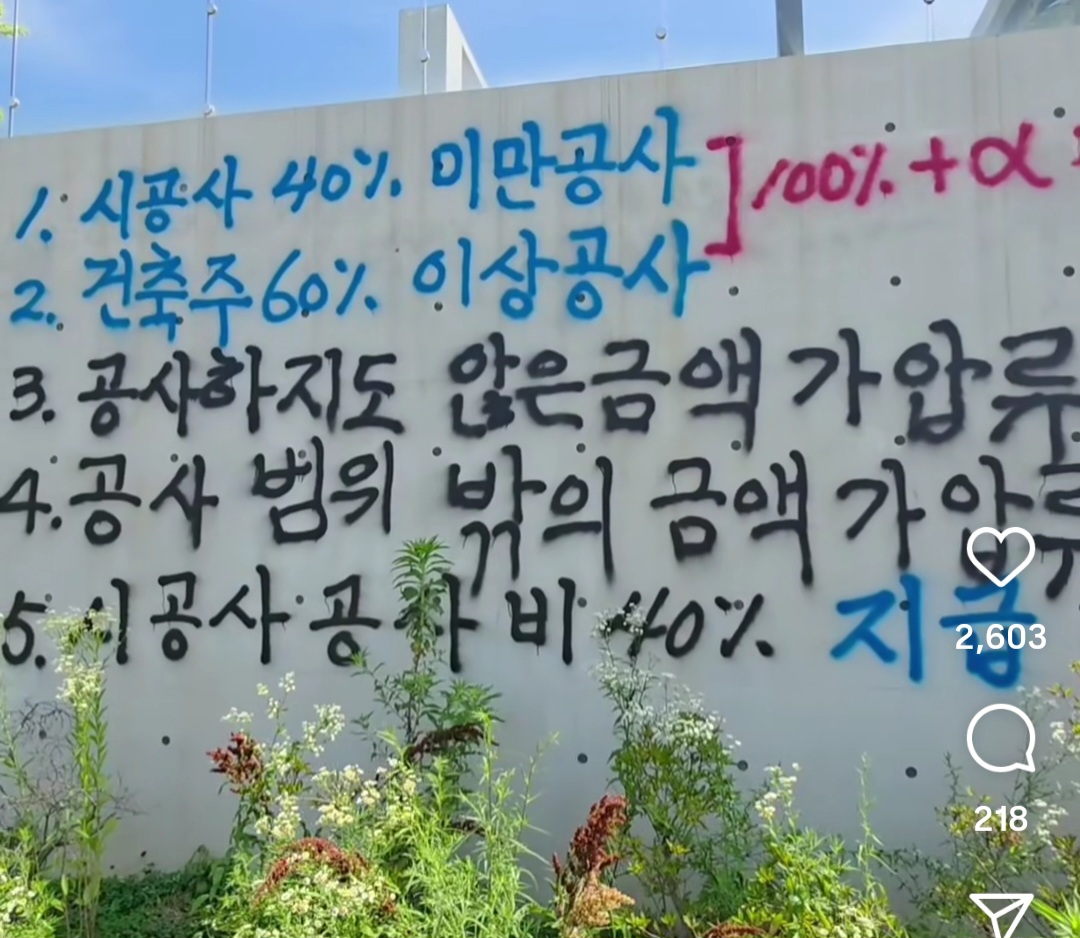 1. 시공사 40% 미만공사 ] 100% + α
2. 건축주 60% 이상공사
3. 공사하지도 않은금액 가압류
4. 공사 범위 밖의 금액 가압류
5. 시공사 공사비 40% 지급
2,603
218